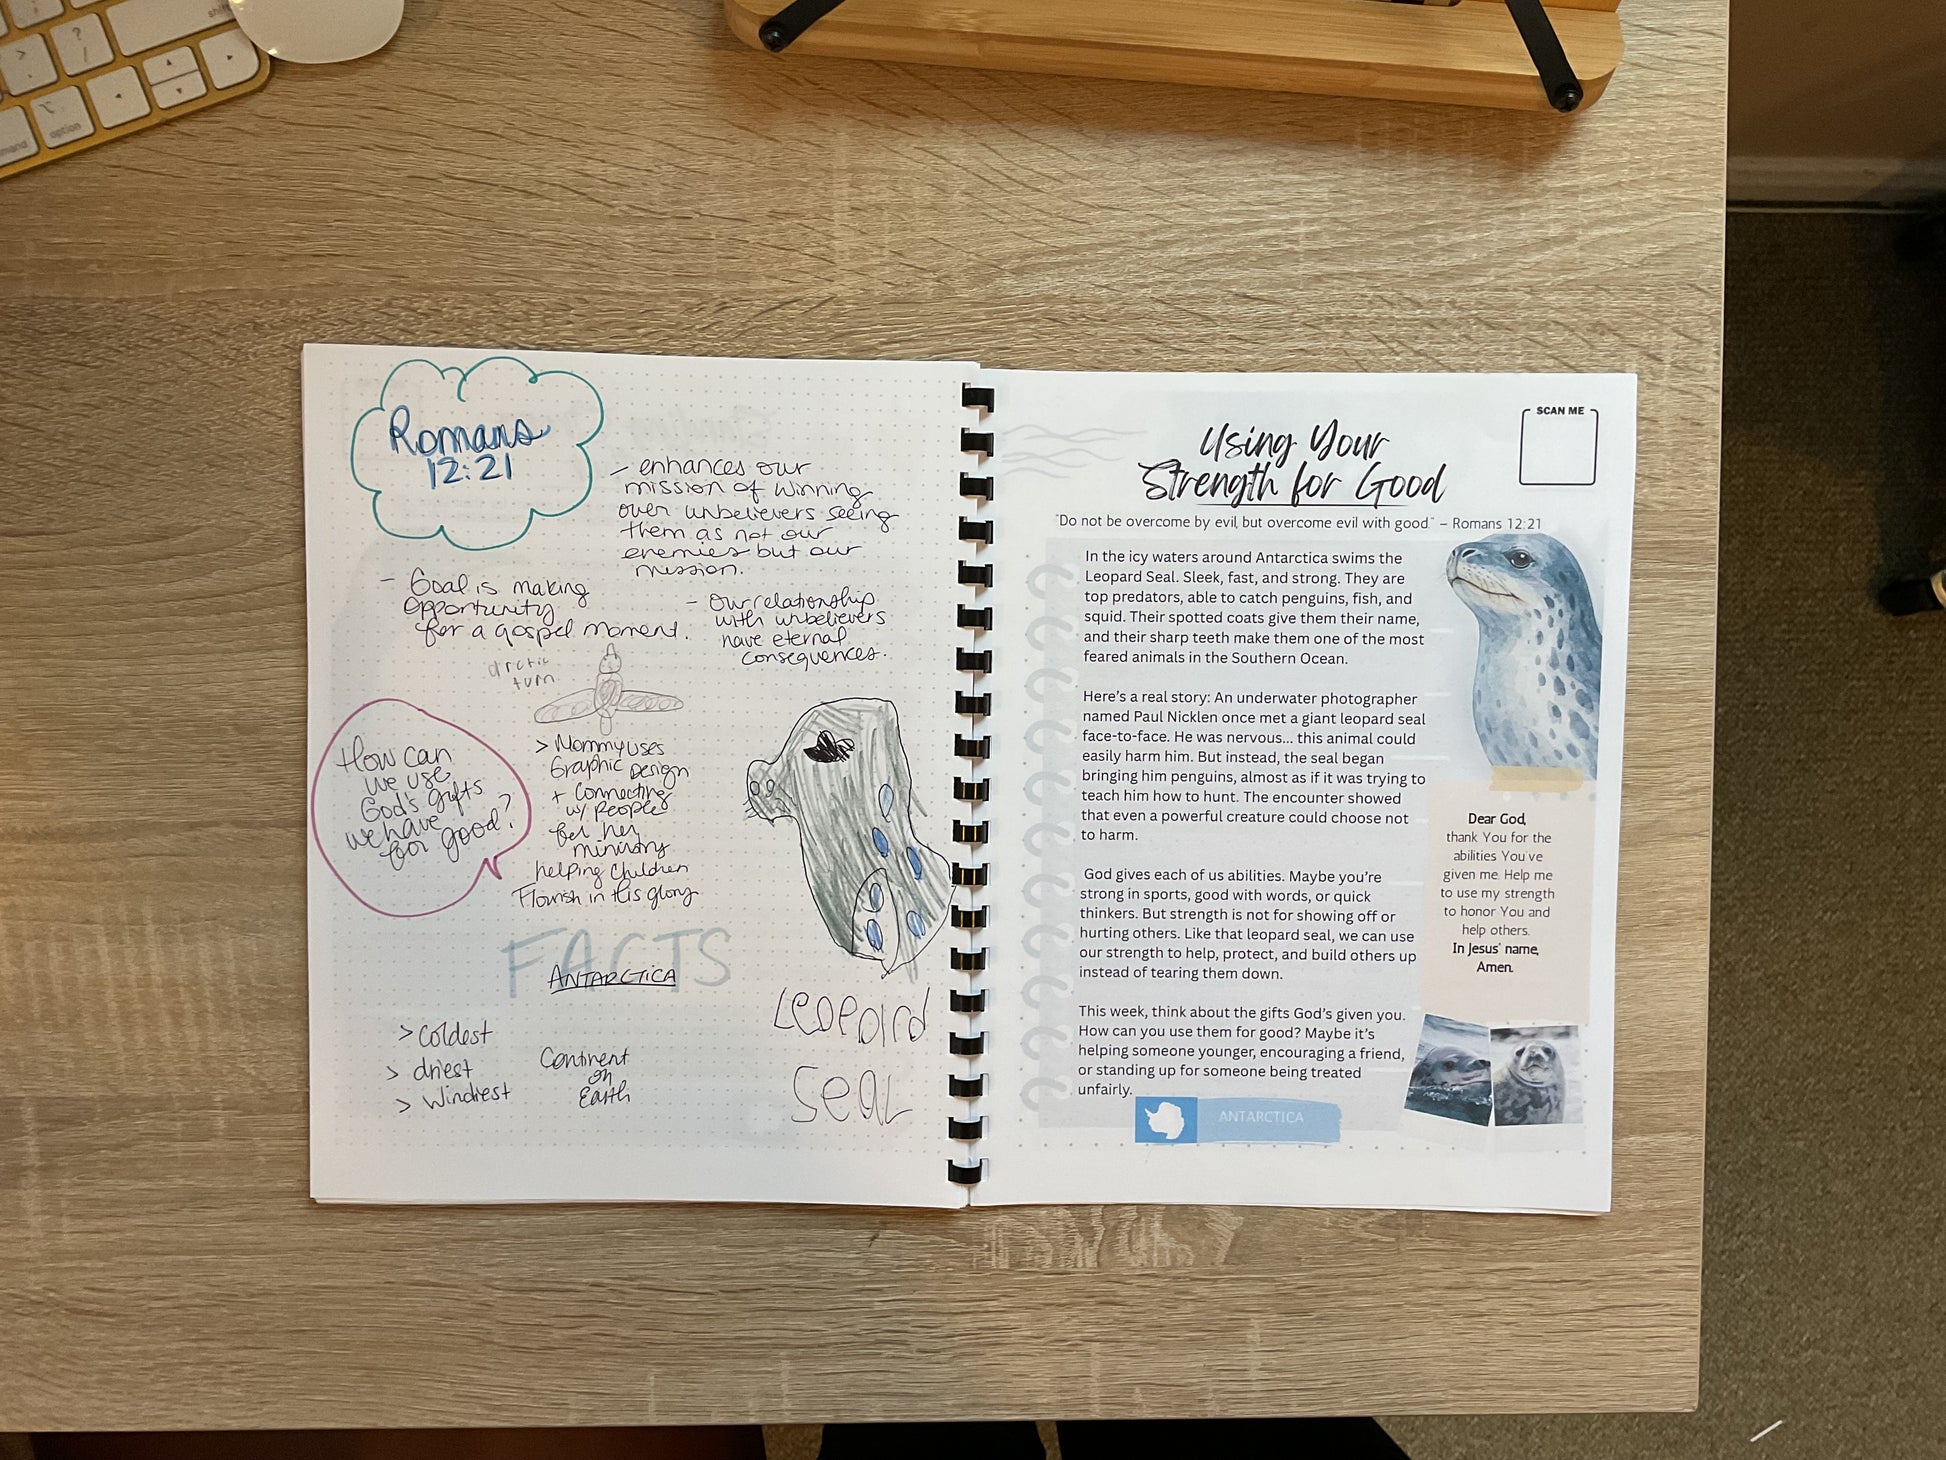 shift
?
/
>
.
option
mand
Romans
12:21
- enhances our
mission of winning
over unbelievers seeing
them as not our
enemies but our
mission.
- Goal is making
opportunity
for a gospel moment.
- Our relationship
with unbelievers
have eternal
consequences.
arctic
turn
How can
we use
God's gifts
we have
for good?
> Mommy uses
Graphic Design
+ Connecting
w/ people
for her
ministry
helping children
Flourish in His glory
FACTS
ANTARCTICA
> coldest
> driest
> windiest
Continent
on
Earth
Leopard
Seal
SCAN ME
Using Your
Strength for Good
"Do not be overcome by evil, but overcome evil with good." – Romans 12:21
In the icy waters around Antarctica swims the
Leopard Seal. Sleek, fast, and strong. They are
top predators, able to catch penguins, fish, and
squid. Their spotted coats give them their name,
and their sharp teeth make them one of the most
feared animals in the Southern Ocean.
Here's a real story: An underwater photographer
named Paul Nicklen once met a giant leopard seal
face-to-face. He was nervous... this animal could
easily harm him. But instead, the seal began
bringing him penguins, almost as if it was trying to
teach him how to hunt. The encounter showed
that even a powerful creature could choose not
to harm.
God gives each of us abilities. Maybe you're
strong in sports, good with words, or quick
thinkers. But strength is not for showing off or
hurting others. Like that leopard seal, we can use
our strength to help, protect, and build others up
instead of tearing them down.
This week, think about the gifts God's given you.
How can you use them for good? Maybe it's
helping someone younger, encouraging a friend,
or standing up for someone being treated
unfairly.
Dear God,
thank You for the
abilities You've
given me. Help me
to use my strength
to honor You and
help others.
In Jesus' name,
Amen.
ANTARCTICA